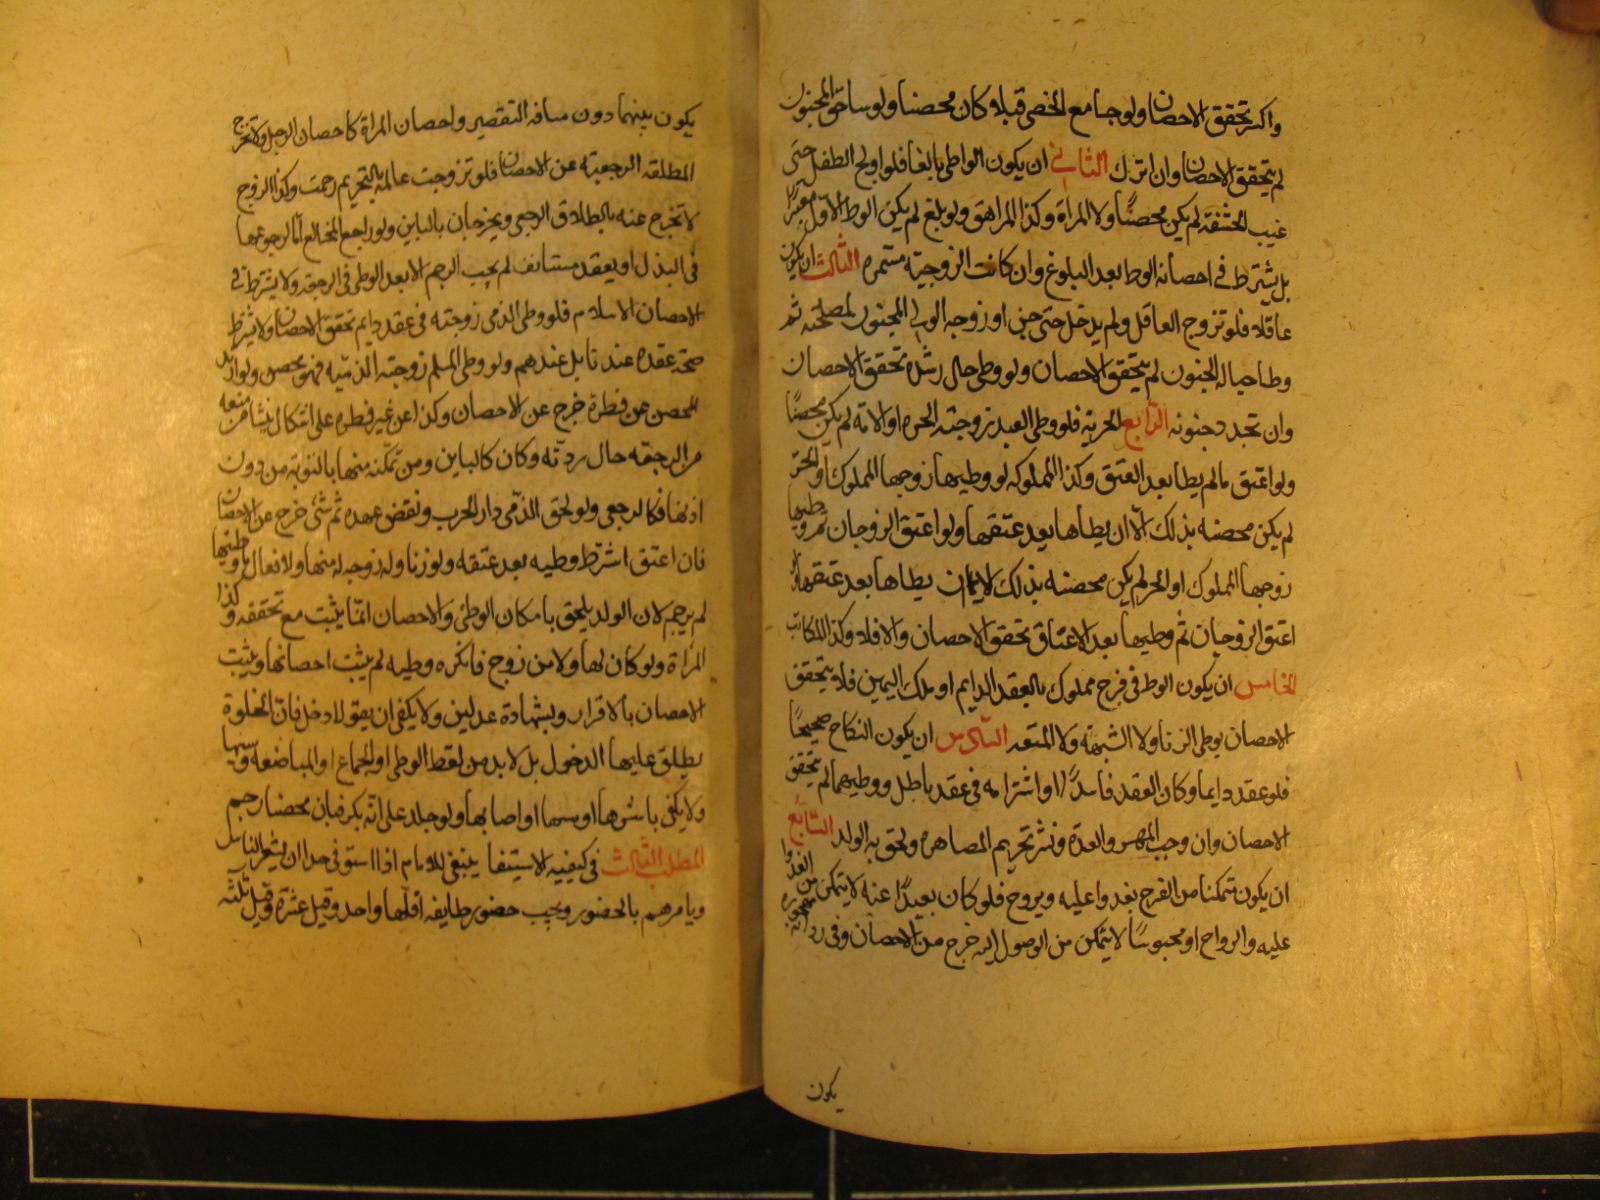 واكسل تحقق الاحصان ولو جامع الخصي قبلا وكان محصنا ولو ساحق المجنون
لم يتحقق الاحصان وان انزل الثاني ان يكون الواطي بالغا فلو اولج الطفل حتى
غيب الحشفة لم يكن محصنًا ولا المراة وكذا المراهق ولو بلغ لم يكن الوطا الاول معتبرًا
بل يشترط في احصانه الوطا بعد البلوغ وان كانت الزوجية مستمره الثالث ان يكون
عاقلا فلو تزوج العاقل ولم يدخل حتى جن او زوجه الولي المجنون لمصلحته ثم
وطا حاله الجنون لم يتحقق الاحصان ولو وطى حال رشده تحقق الاحصان
وان تجدد جنونه الرابع الحرية فلو وطى العبد زوجته الحره او الامه لم يكن محصنًا
ولو اعتق ما لم يطا بعد العتق وكذا المملوكه لو وطيها زوجها المملوك او الحر
لم يكن محصنه بذلك الا ان يطاها بعد عتقها ولو اعتق الزوجان ثم وطيها
زوجها المملوك او الحر لم يكن محصنه بذلك الا ان يطاها بعد عتقها ولو
اعتق الزوجان ثم وطيها بعد الاعتاق تحقق الاحصان والا فلا وكذا المكاتب
الخامس ان يكون الوطا في فرج مملوك بالعقد الدايم او ملك اليمين فلا يتحقق
الاحصان بوطى الزنا ولا الشبهة ولا المتعه السادس ان يكون النكاح صحيحًا
فلو عقد دايما وكان العقد فاسدًا او اشترا مه في عقد باطل ووطيهما لم يتحقق
الاحصان وان وجب المهر والعدة ونشر تحريم المصاهره ولحق به الولد السابع
ان يكون متمكنا من الفرج يغدوا عليه ويروح فلو كان بعيدًا عنه لا يتمكن من الغدوا
عليه والرواح او محبوسًا لا يتمكن من الوصول اليه خرج من الاحصان وفى رواية مهجوره
يكون
يكون بينهما دون مسافه التقصير واحصان المراة كاحصان الرجل ولا تخرج
المطلقه الرجعية عن الاحصان فلو تزوجت عالمة بالتحريم رجمت وكذا الزوج
لا تخرج عنه بالطلاق الرجعي ويخرجان بالباين ولو راجع المخالع اما لرجوعها
في البذل او بعقد مستانف لم يجب الرجم الا بعد الوطى في الرجعة ولا يشترط في
الاحصان الاسلام فلو وطى الذمى زوجته في عقد دايم تحقق الاحصان ولا يشترط
صحة عقده عندنا بل عندهم ولو وطى المسلم زوجته الذمية فهو محصن ولو ارتد
المحصن عن فطرة خرج عن الاحصان وكذا عن غير فطره على اشكال ينشا من منعه
من الرجعه حال ردته وكان كالباين ومن تمكنه منها بالتوبه من دون
اذنها فكالرجعى ولو لحق الذمى دار الحرب ونقض عهده ثم سبى خرج عن الاحصان
فان اعتق اشترط وطيه بعد عتقه ولو زنا وله زوجه له منها ولد فقال ما وطيتها
لم يرجم لان الولد يلحق بامكان الوطئ والاحصان انما يثبت مع تحققه وكذا
المرأة ولو كان لها ولد من زوج فانكره وطيه لم يثبت احصانها ويثبت
الاحصان بالاقرار وبشهادة عدلين ولا يكفى ان يقولا دخل فان الخلوة
يطلق عليها الدخول بل لا بد من لفظ الوطى او الجماع او المباضعة وشبهها
ولا يكفى باشرها او مسها او اصابها ولو جلد على انه بكر فبان محصنا رجم
المطلب الثالث في كيفيه الاستيفا ينبغى للامام اذا استوفى حدا ان يشعر الناس
ويامرهم بالحضور ويجب حضور طايفه اقلها واحد وقيل عشرة وقيل ثلثه